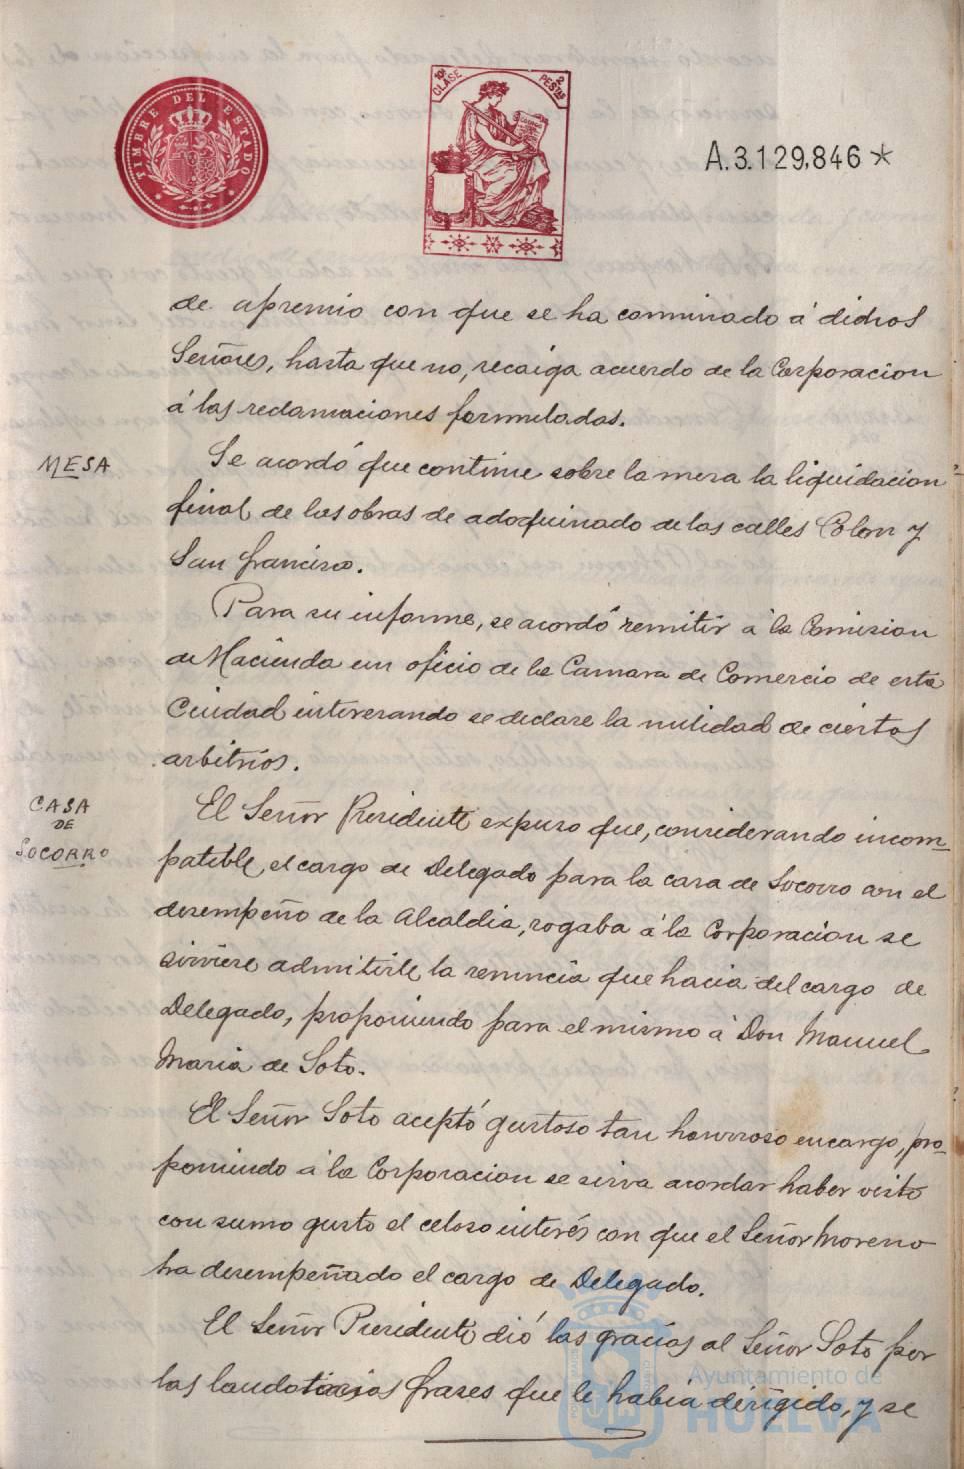 TIMBRE DEL ESTADO
10ª CLASE
2 PESTAS
A.3.129,846 *
de apremio con que se ha conminado á dichos
Señores, hasta que no, recaiga acuerdo de la Corporacion
á las reclamaciones formuladas.
MESA
Se acordó que continue sobre la mesa la liquidacion
final de las obras de adoquinado de las calles Colon y
San Francisco.
Para su informe, se acordó remitir á la Comision
de Hacienda un oficio de la Camara de Comercio de esta
Ciudad interesando se declare la nulidad de ciertos
arbitrios.
CASA
DE
SOCORRO
El Señor Presidente expuso que, considerando incom-
patible, el cargo de Delegado para la casa de Socorro con el
desempeño de la Alcaldia, rogaba á la Corporacion se
sirviere admitirle la renuncia que hacia del cargo de
Delegado, proponiendo para el mismo á Don Manuel
Maria de Soto.
El Señor Soto aceptó gustoso tan honrroso encargo, pro-
poniendo á la Corporacion se sirva acordar haber visto
con sumo gusto el celoso interés con que el Señor Moreno
ha desempeñado el cargo de Delegado.
El Señor Presidente dió las gracias al Señor Soto por
las laudatorias frases que le habia dirigido, y se
Ayuntamiento de
HUELVA